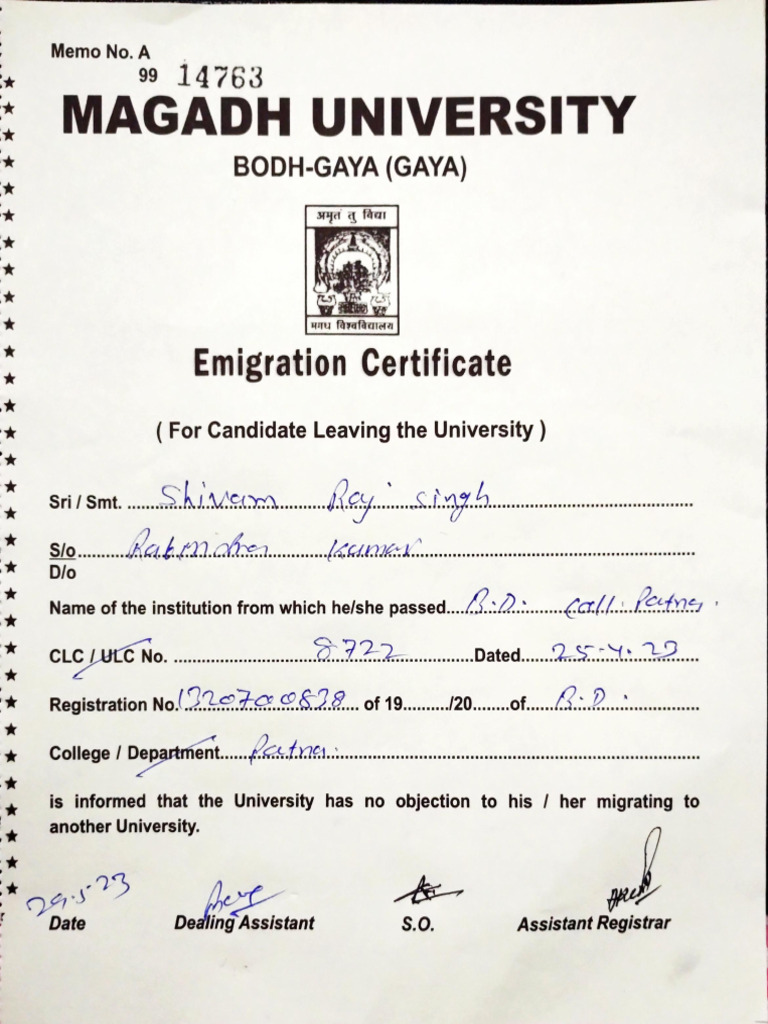 Memo No. A
99 14763
MAGADH UNIVERSITY
BODH-GAYA (GAYA)
अमृतं तु विद्या
मगध विश्वविद्यालय
Emigration Certificate
( For Candidate Leaving the University )
Sri / Smt. Shivam Raj Singh
S/o Rabindra Kumar
D/o
Name of the institution from which he/she passed B.D. Coll. Patna.
CLC / ULC No. 8722 Dated 25-4-23
Registration No. 1320700838 of 19........./20.......of B.D.
College / Department Patna.
is informed that the University has no objection to his / her migrating to
another University.
29.5.23
Date Dealing Assistant S.O. Assistant Registrar